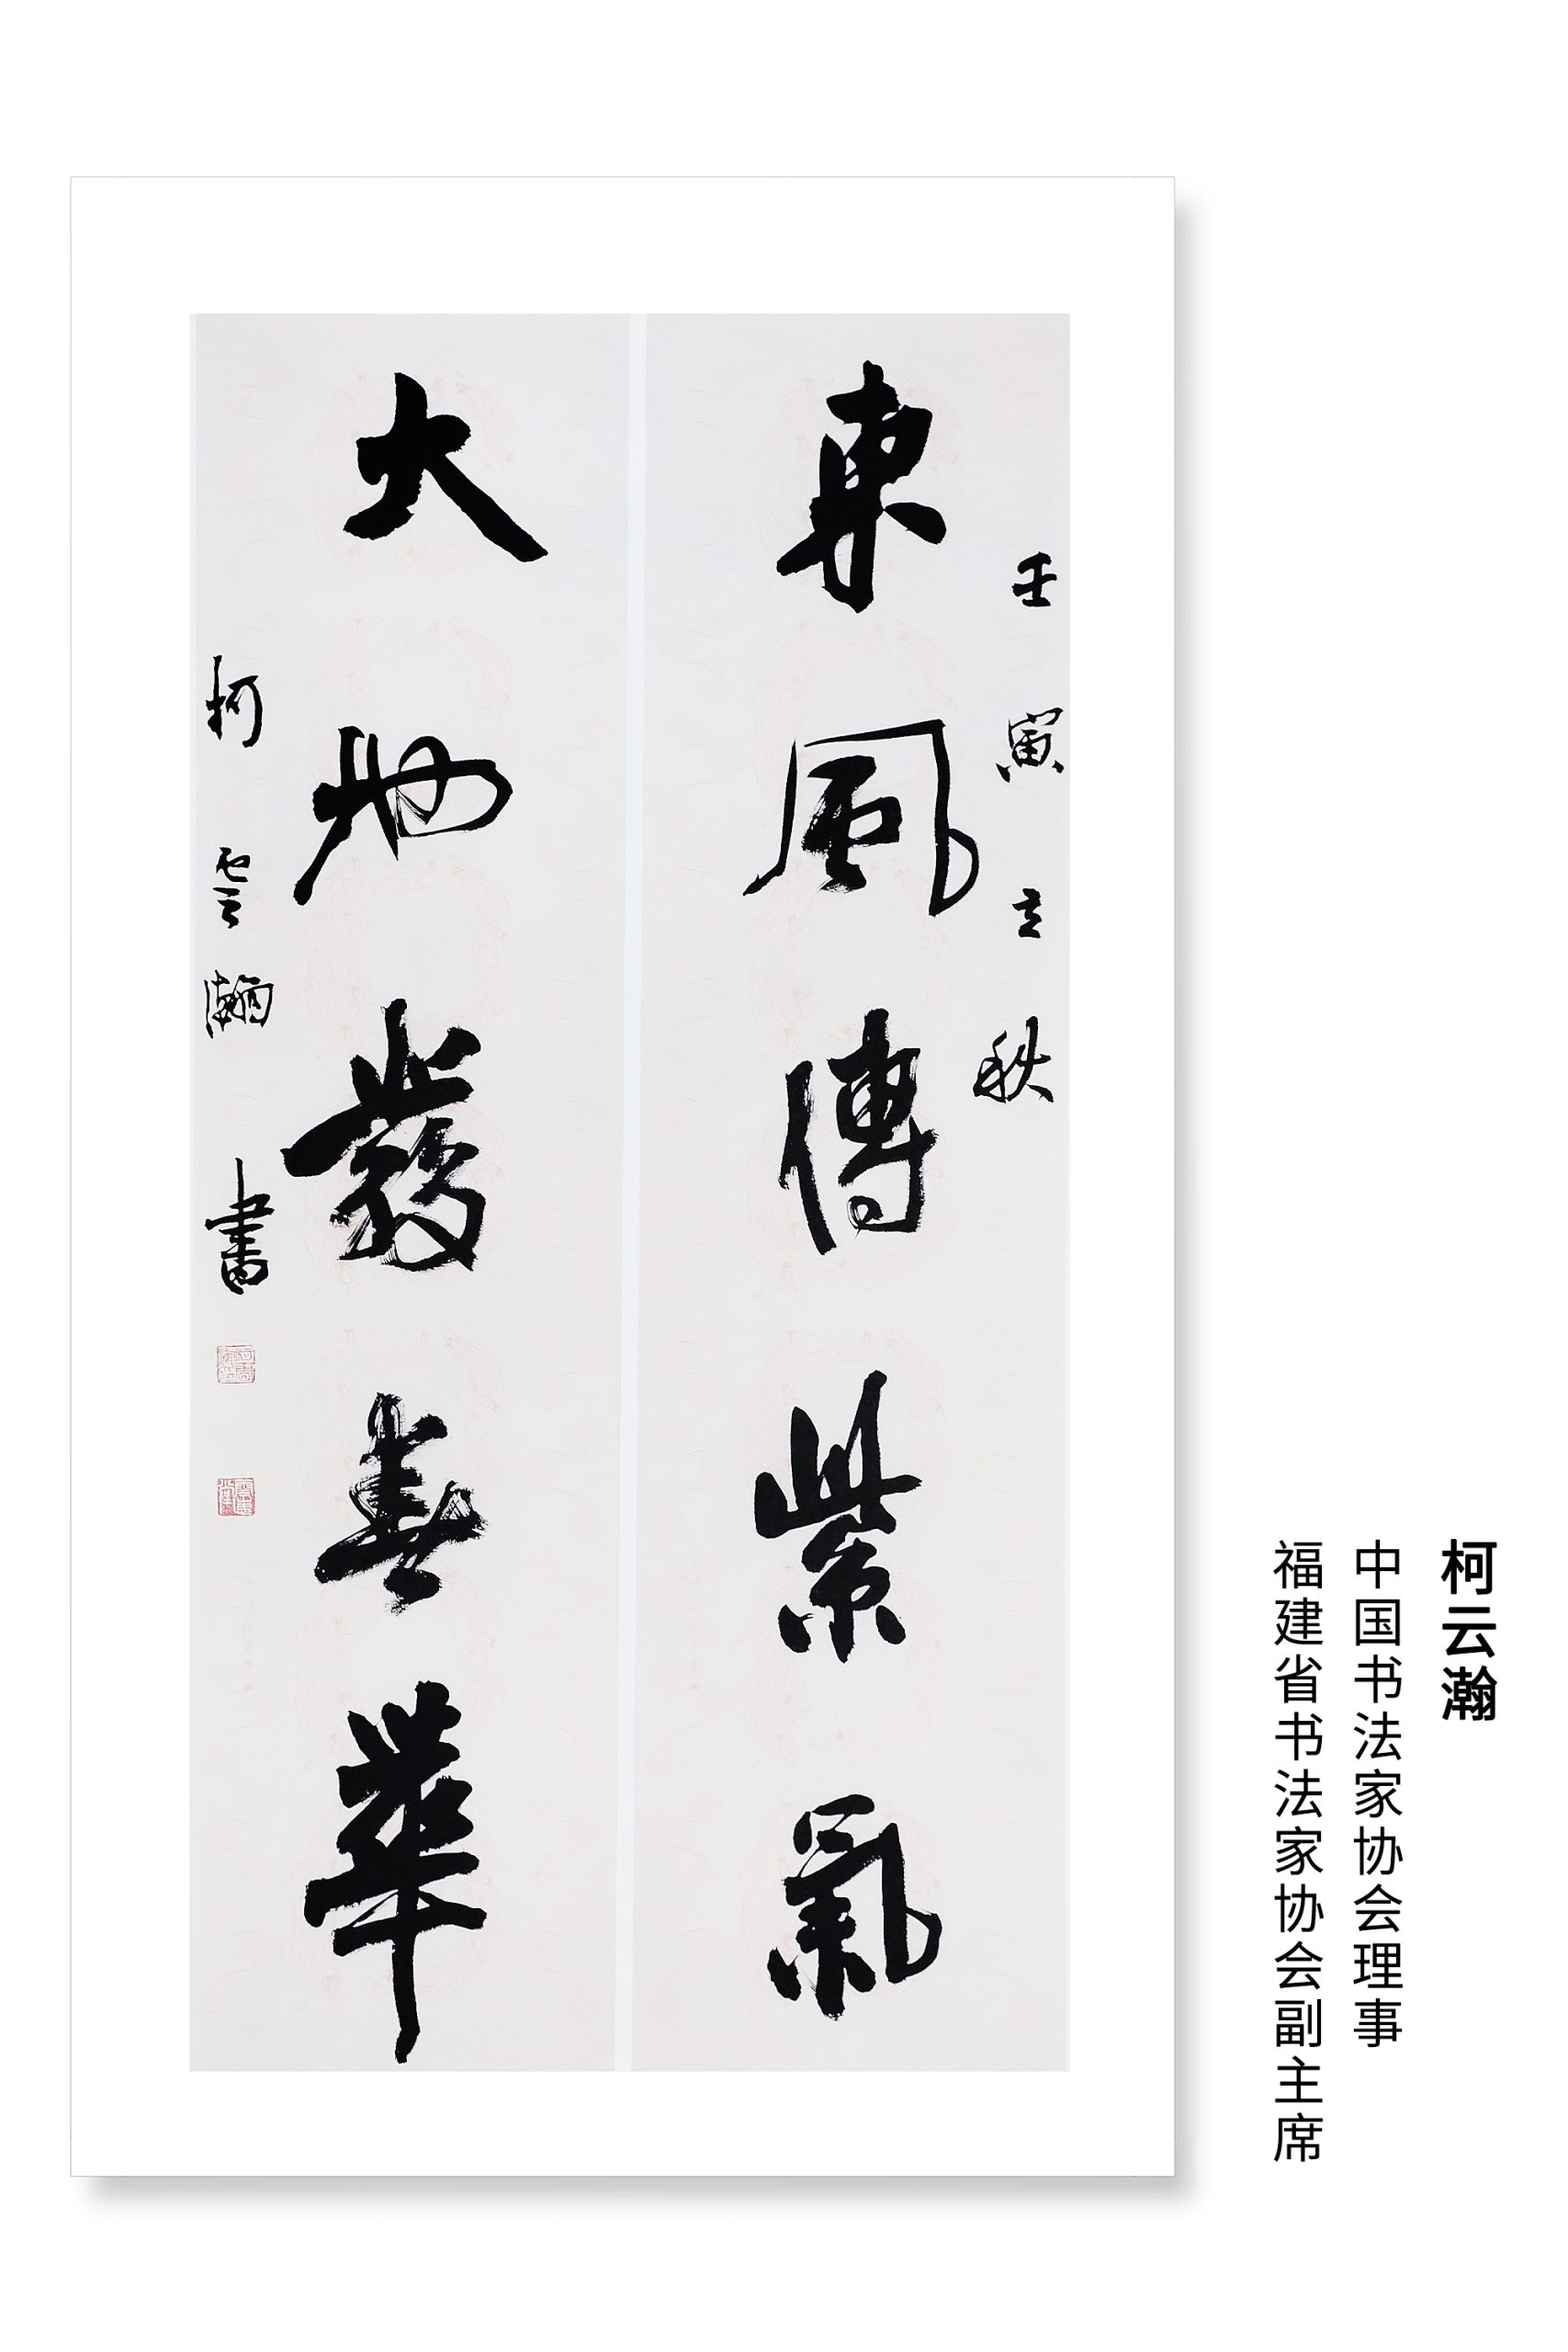 壬寅立秋
東風傳紫氣
大地發春華
柯雲瀚書
柯云瀚
中国书法家协会理事
福建省书法家协会副主席